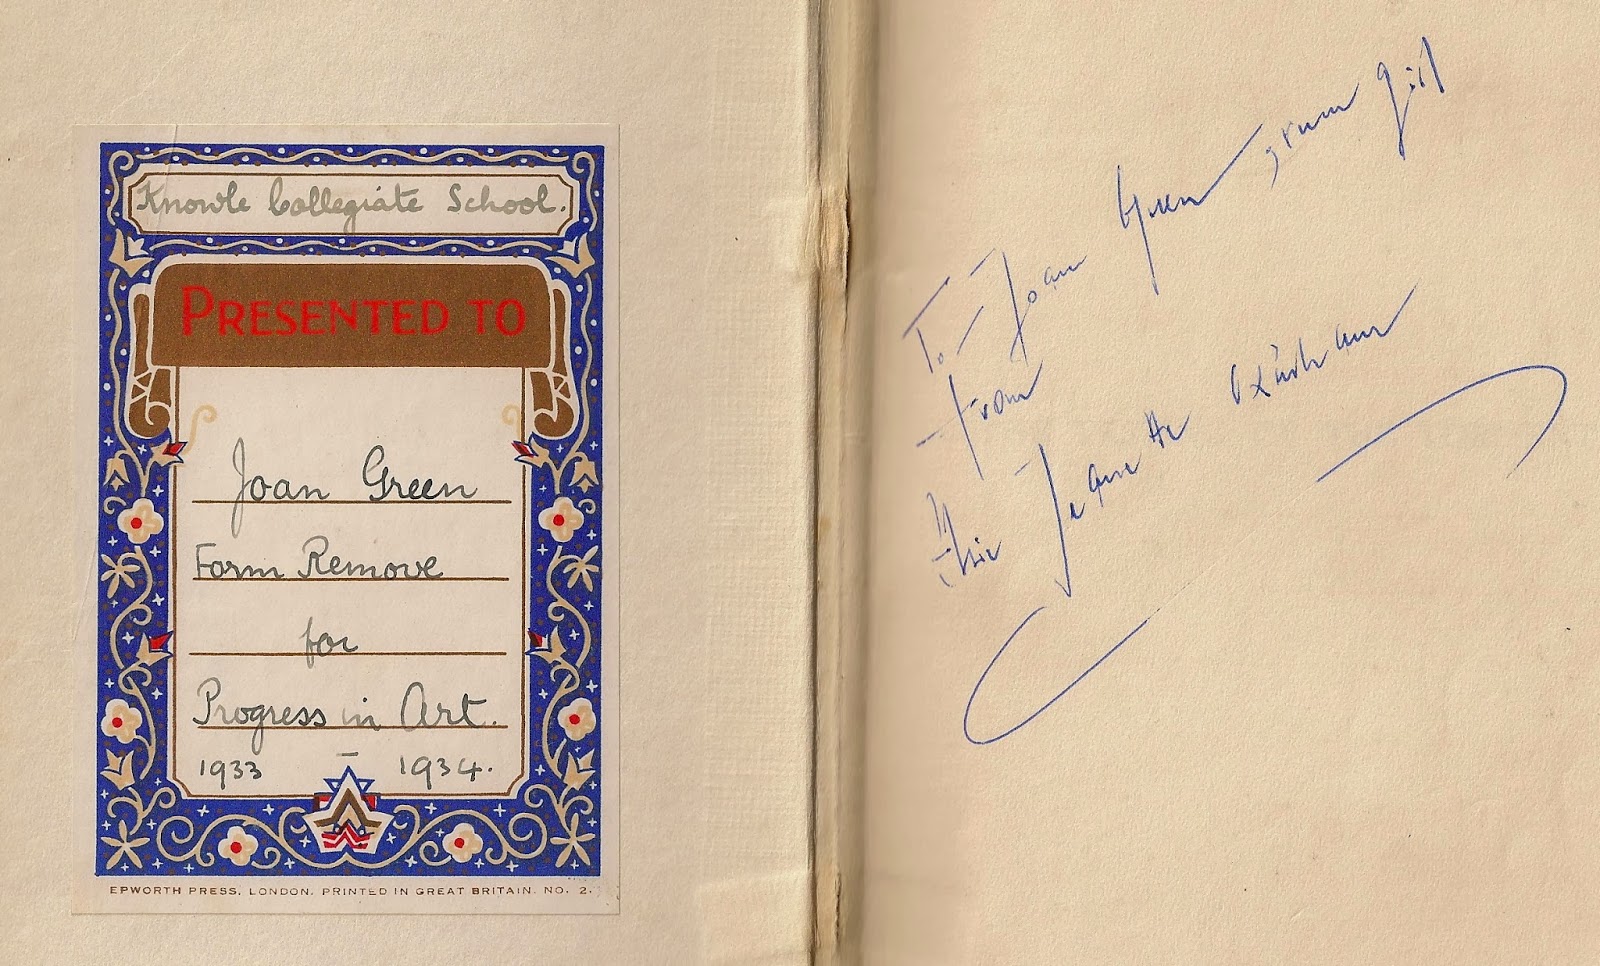 Knowle Collegiate School.
PRESENTED TO
Joan Green
Form Remove
for
Progress in Art.
1933 – 1934.
EPWORTH PRESS, LONDON. PRINTED IN GREAT BRITAIN. NO. 2.
To Joan Green,
From